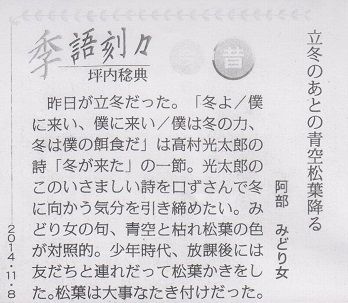 季語刻々
昔
坪内稔典
立冬のあとの青空松葉降る
阿部 みどり女
昨日が立冬だった。「冬よ／僕
に来い、僕に来い／僕は冬の力、
冬は僕の餌食だ」は高村光太郎の
詩「冬が来た」の一節。光太郎の
このいさましい詩を口ずさんで冬
に向かう気分を引き締めたい。み
どり女の句、青空と枯れ松葉の色
が対照的。少年時代、放課後には
友だちと連れだって松葉かきをし
た。松葉は大事なたき付けだった。
2014・11・8